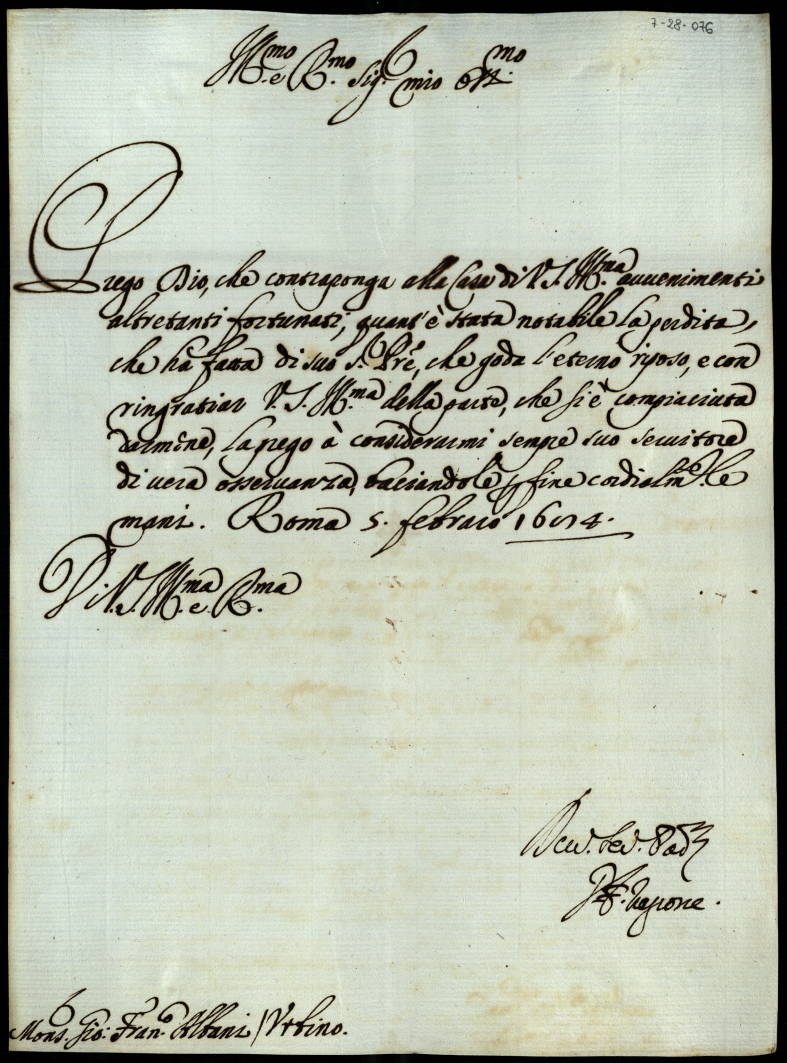 7-28-076
Ill.mo e R.mo Sig.r mio oss.mo
Prego Dio, che contraponga alla Casa di V. S. Ill.ma auuenimenti
altretanti fortunati, quant'è stata notabile la perdita,
che hà fatta di suo S.r Pre, che goda l'eterno riposo, e con
ringratiar V. S. Ill.ma della parte, che si è compiaciuta
darmene, la prego à considerarmi senpre suo seruitore
di uera osseruanza, baciandole p fine cordialm.te le
mani. Roma 5. febraio 1684.
Di V. S. Ill.ma e R.ma
Mons.r Gio: Fran.co Albani / Vrbino.